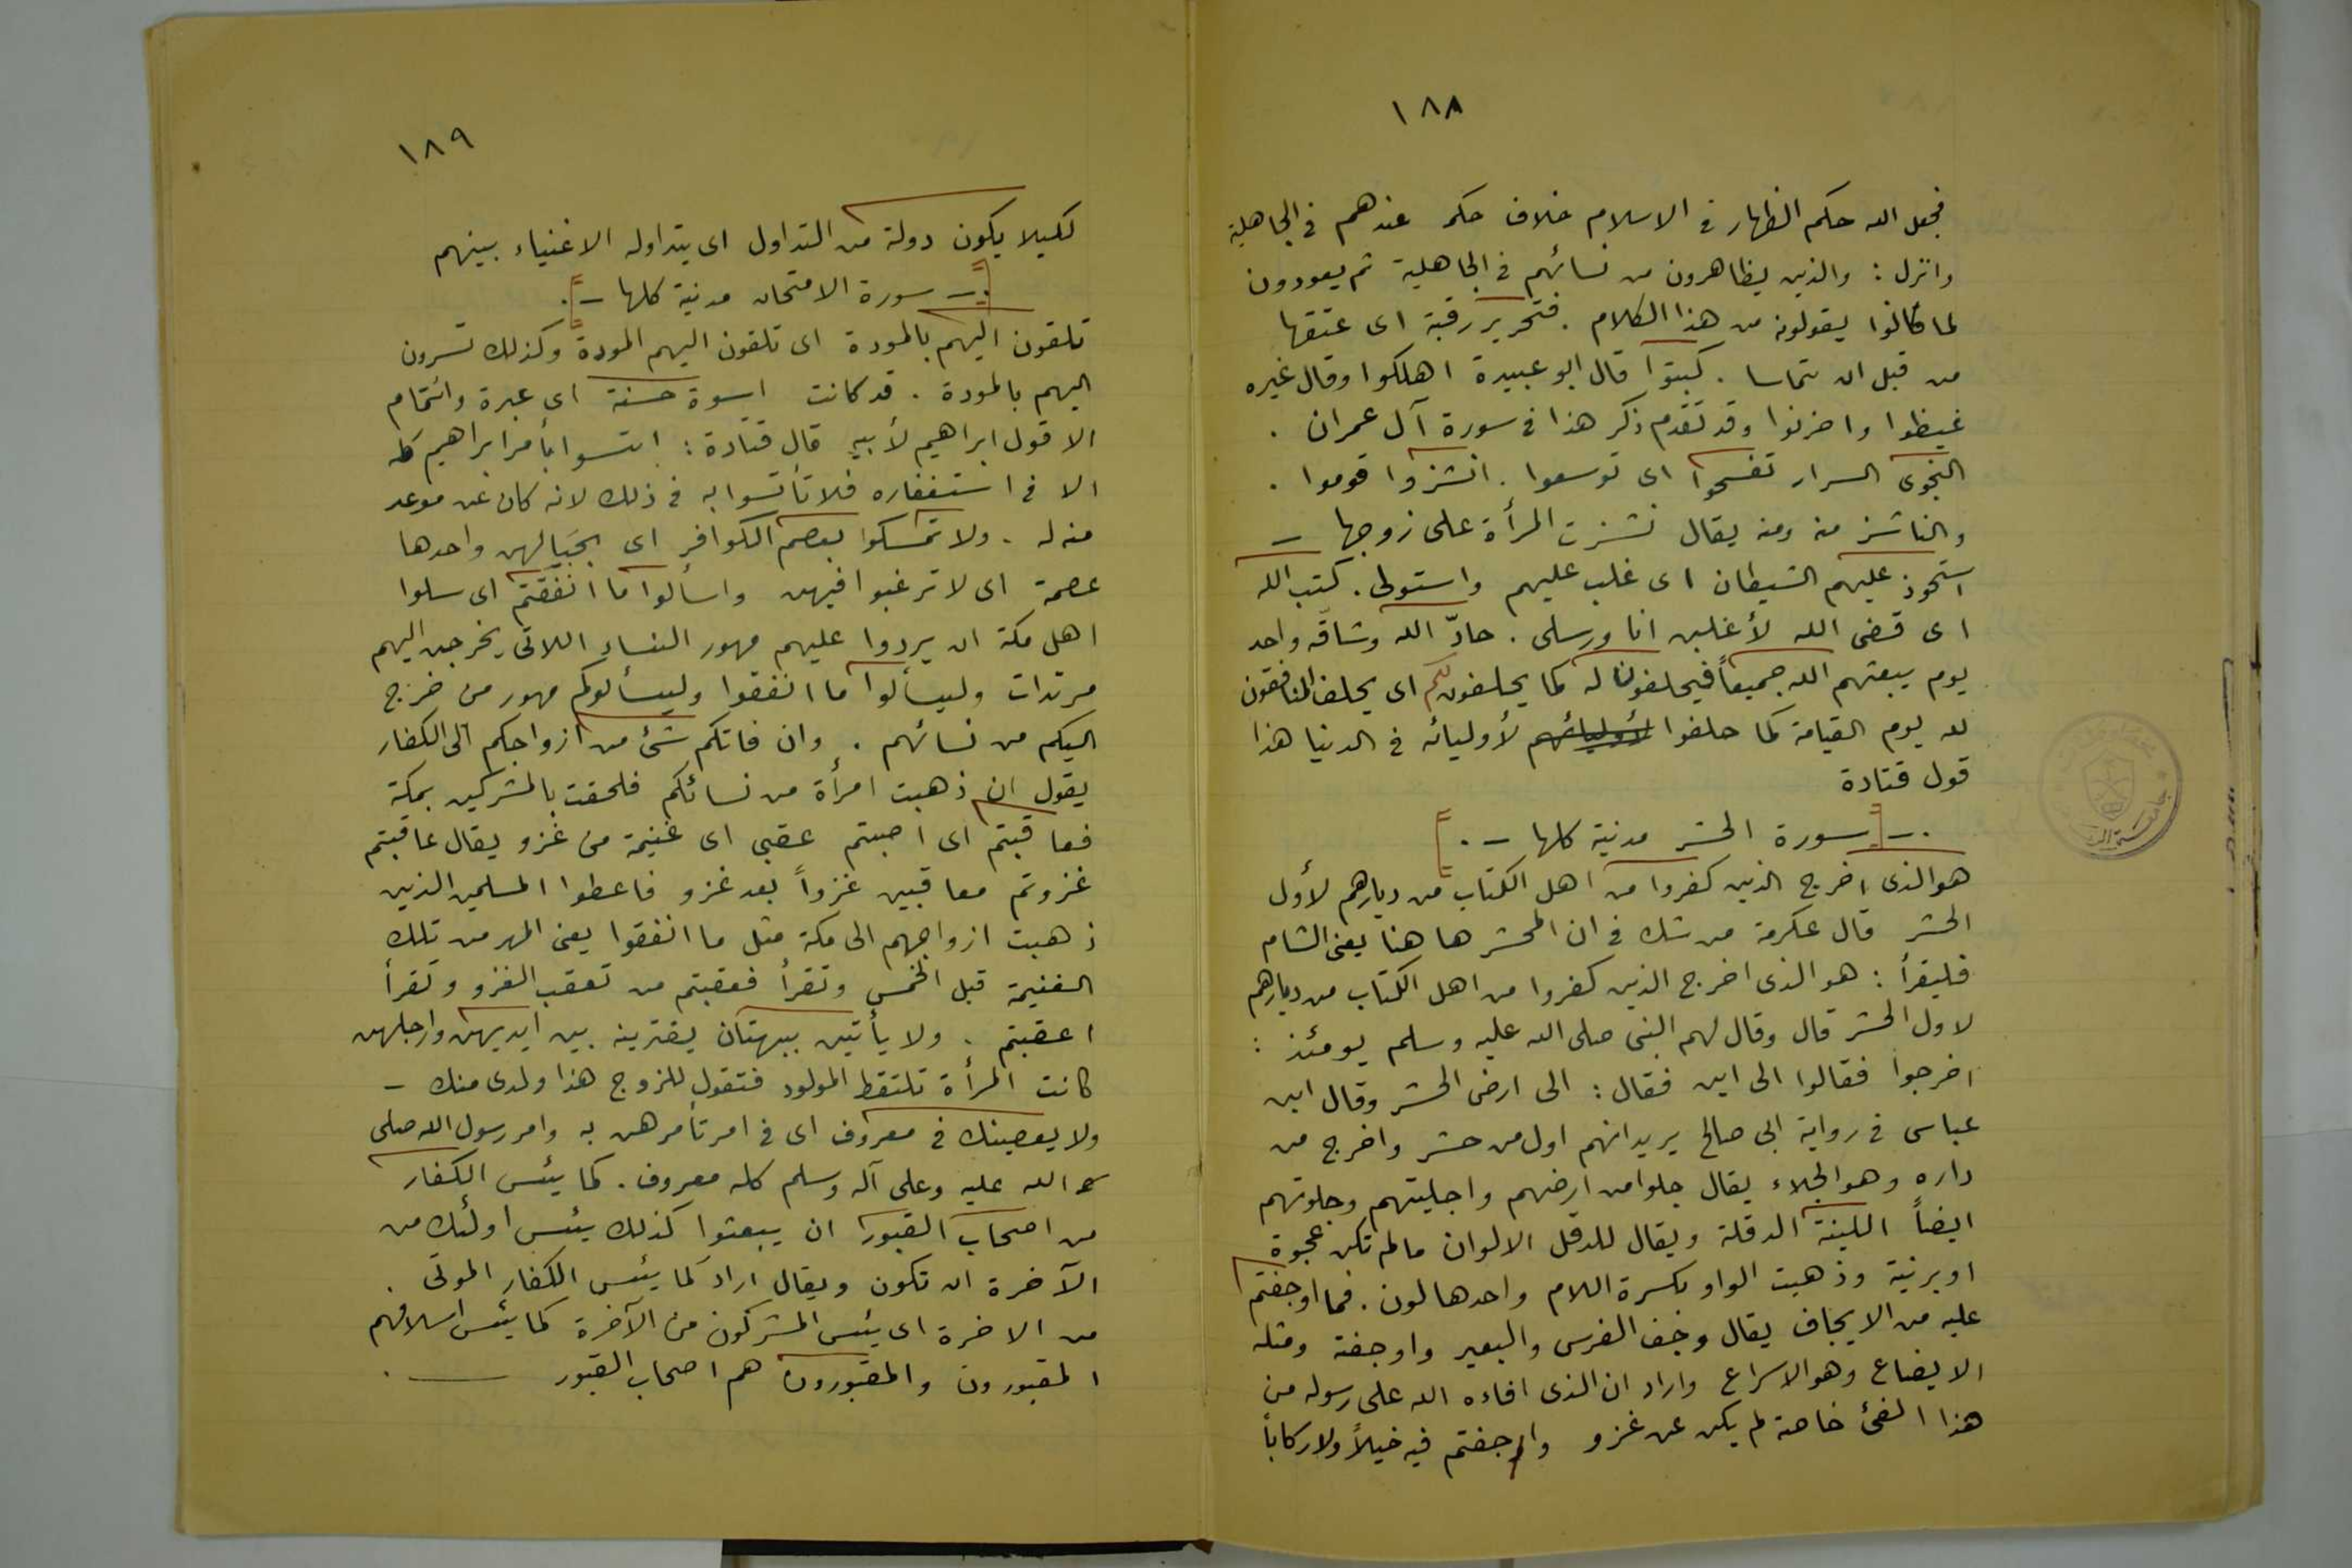 ١٨٨
فجعل الله حكم الظهار فى الاسلام خلاف حكمه عندهم فى الجاهلية
وانزل : والذين يظاهرون من نسائهم فى الجاهلية ثم يعودون
لما قالوا يقولونه من هذا الكلام . فتحرير رقبة اى عتقها
من قبل ان يتماسا . كبتوا قال ابو عبيدة اهلكوا وقال غيره
غيظوا واحزنوا وقد تقدم ذكر هذا فى سورة آل عمران .
النجوى السرار تفسحوا اى توسعوا . انشزوا قوموا .
والناشز منه ومنه يقال نشزت المرأة على زوجها –
استحوذ عليهم الشيطان اى غلب عليهم واستولى . كتب الله
اى قضى الله لأغلبن انا ورسلى . حادّ الله وشاقّه واحد
يوم يبعثهم الله جميعاً فيحلفون له كما يحلفون لكم اى يحلف المنافقون
لله يوم القيامة كما حلفوا لأوليائهم لأوليائه فى الدنيا هذا
قول قتادة
.–[ سورة الحشر مدنية كلها –.]
هو الذى اخرج الذين كفروا من اهل الكتاب من ديارهم لأول
الحشر قال عكرمة من شك فى ان المحشر ها هنا يعنى الشام
فليقرأ : هو الذى اخرج الذين كفروا من اهل الكتاب من ديارهم
لاول الحشر قال وقال لهم النبى صلى الله عليه وسلم يومئذ :
اخرجوا فقالوا الى اين فقال : الى ارض الحشر وقال ابن
عباس فى رواية ابى صالح يريد انهم اول من حشر واخرج من
داره وهو الجلاء يقال جلوا من ارضهم واجليتهم وجلوتهم
ايضاً اللينة الدقلة ويقال للدقل الالوان ما لم تكن عجوة
او برنية وذهبت الواو بكسرة اللام واحدها لون . فما اوجفتم
عليه من الايجاف يقال وجف الفرس والبعير واوجفته ومثله
الايضاع وهو الاسراع واراد ان الذى افاءه الله على رسوله من
هذا الفئ خاصة لم يكن عن غزو ولا اوجفتم فيه خيلاً ولا ركاباً
١٨٩
لكيلا يكون دولة من التداول اى يتداوله الاغنياء بينهم
[.– سورة الامتحان مدنية كلها –.]
تلقون اليهم بالمودة اى تلقون اليهم المودة وكذلك تسرون
اليهم بالمودة . قد كانت اسوة حسنة اى عبرة وائتمام
الا قول ابراهيم لأبيه قال قتادة : ائتسوا بأمر ابراهيم كله
الا فى استغفاره فلا تأتسوا به فى ذلك لانه كان عن موعد
منه له . ولا تمسكوا بعصم الكوافر اى بحبالهن واحدها
عصمة اى لا ترغبوا فيهن واسألوا ما انفقتم اى سلوا
اهل مكة ان يردوا عليهم مهور النساء اللاتى يخرجن اليهم
مرتدات وليسألوا ما انفقوا وليسألوكم مهور من خرج
اليكم من نسائهم . وان فاتكم شئ من ازواجكم الى الكفار
يقول ان ذهبت امرأة من نسائكم فلحقت بالمشركين بمكة
فعاقبتم اى اصبتم عقبى اى غنيمة من غزو يقال عاقبتم
غزوتم معاقبين غزواً بعد غزو فاعطوا المسلمين الذين
ذهبت ازواجهم الى مكة مثل ما انفقوا يعنى المهر من تلك
الغنيمة قبل الخمس وتقرأ فعقبتم من تعقب الغزو وتقرأ
اعقبتم . ولا يأتين ببهتان يفترينه بين ايديهن وارجلهن
كانت المرأة تلتقط المولود فتقول للزوج هذا ولدى منك –
ولا يعصينك فى معروف اى فى امر تأمرهن به وامر رسول الله صلى
الله عليه وعلى آله وسلم كله معروف . كما يئس الكفار
من اصحاب القبور ان يبعثوا كذلك يئس اولئك من
الآخرة ان تكون ويقال اراد كما يئس الكفار الموتى .
من الاخرة اى يئس المشركون من الآخرة كما يئس اسلافهم
المقبورون والمقبورون هم اصحاب القبور ——.